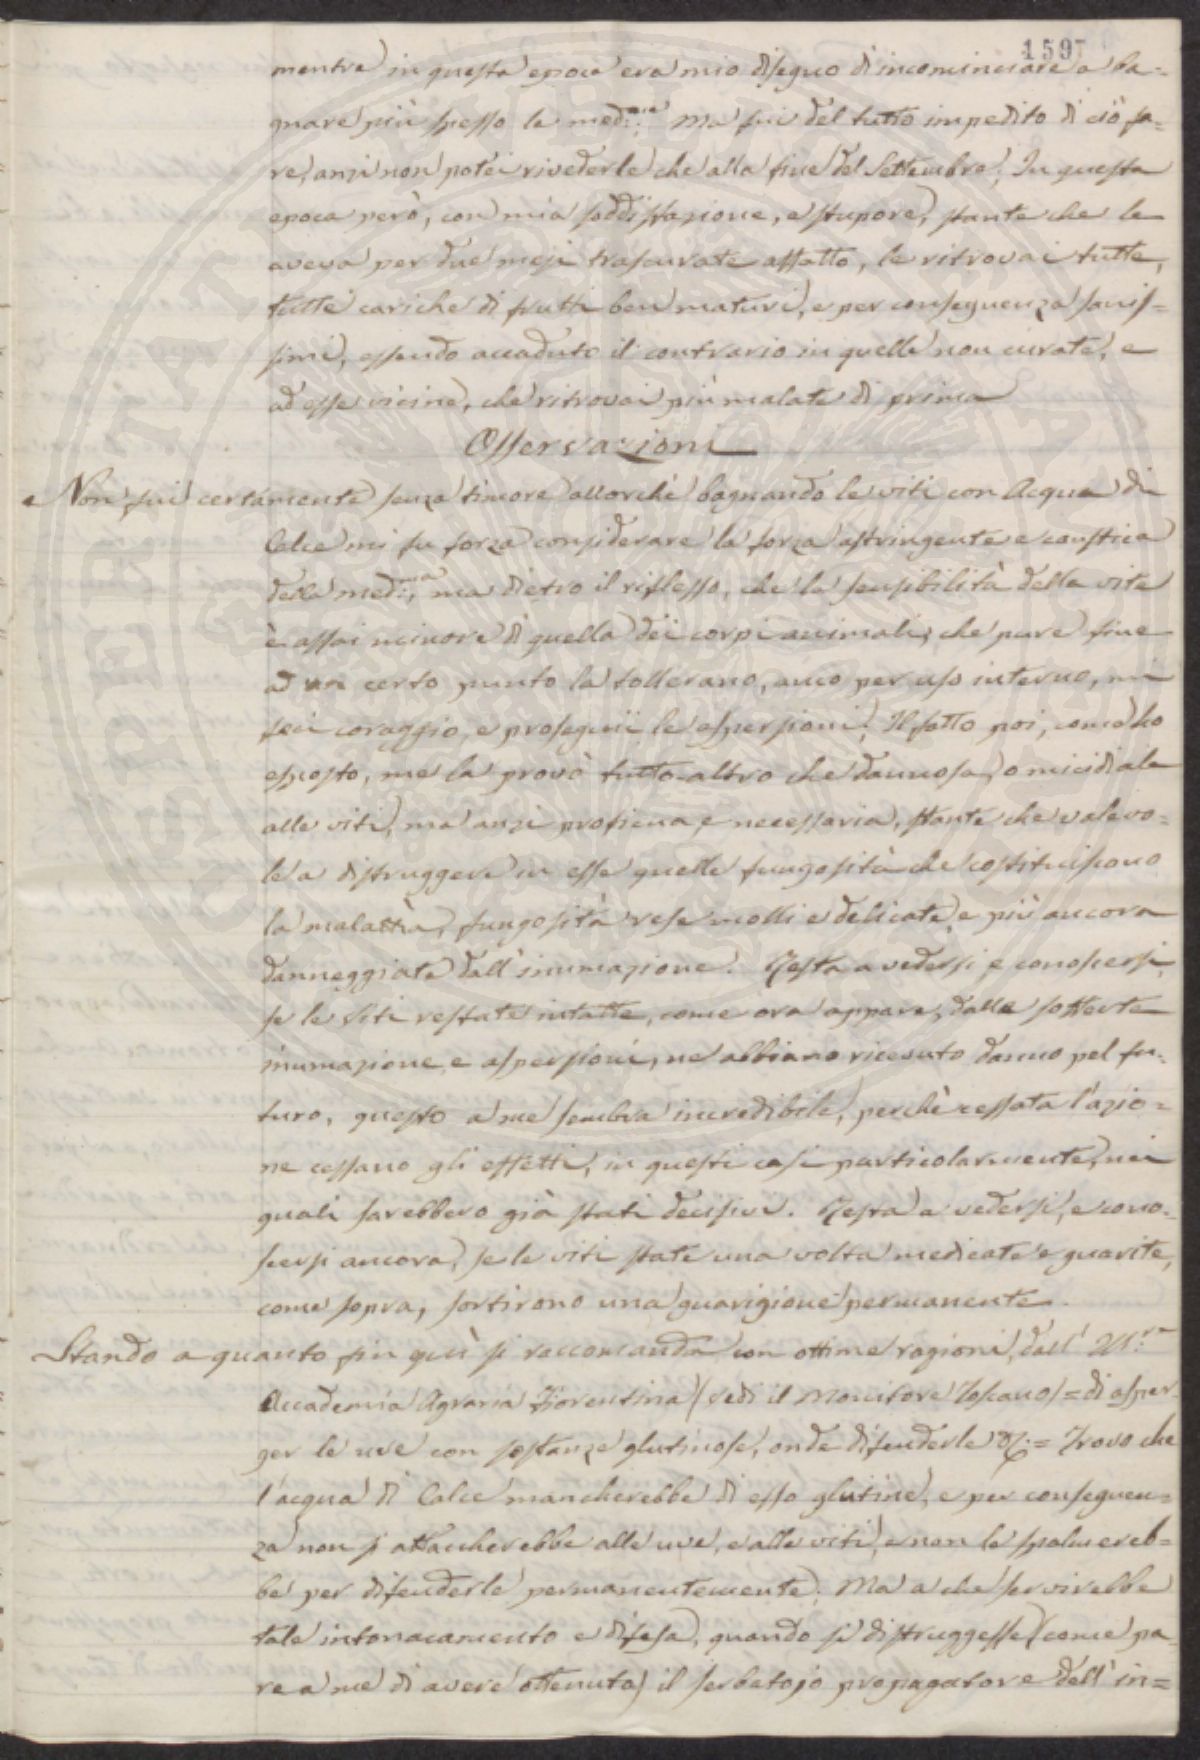 1597
mentre in questa epoca era mio disegno d'incominciare a ba=
gnare più spesso le med:me Ma fui del tutto impedito di ciò fa=
re, anzi non potei rivederle che alla fine del Settembre. In questa
epoca però, con mia soddisfazione, e stupore, stante che le
aveva per due mesi trascurate affatto, le ritrovai tutte,
tutte cariche di frutti ben maturi, e per conseguenza sanis=
simi, essendo accaduto il contrario in quelle non curate, e
ad esse vicine, che ritrovai più malate di prima
Osservazioni
Non fui certamente senza timore allorchè bagnando le viti con Acqua di
Calce mi fu forza considerare la forza astringente e caustica
della med:ma, ma dietro il riflesso, che la sensibilità della vite
è assai minore di quella dei corpi animali, che pure fine
ad un certo punto la tollerano, anco per uso interno, mi
feci coraggio, e proseguii le aspersioni. Il fatto poi, come ho
esposto, me la provò tutto altro che dannosa, o micidiale
alle viti, ma anzi proficua, e necessaria, stante che valevo=
le a distruggere in esse quelle fungosità che costituiscono
la malattia, fungosità rese molli e delicate, e più ancora
danneggiate dall'inumazione. Resta a vedersi, e conoscersi,
se le Viti restate intatte, come ora appare, dalle sofferte
inumazione, e aspersioni, ne abbiano ricevuto danno pel fu=
turo, questo a me sembra incredibile, perchè cessata l'azio=
ne cessano gli effetti, in questi casi particolarmente, nei
quali sarebbero già stati decisivi. Resta a vedersi, e cono=
scersi ancora, se le viti state una volta medicate e guarite,
come sopra, sortirono una guarigione permanente.
Stando a quanto fin quì si raccomanda con ottime ragioni, dall'
Accademia Agraria Fiorentina (vedi il Monitore Toscano) = di asper=
ger le uve con sostanze glutinose, onde difenderle &. = Trovo che
l'acqua di Calce mancherebbe di esso glutine, e per conseguen=
za non si attaccherebbe alle uve, e alle viti, e non le spalmereb=
be per difenderle permanentemente. Ma a che servirebbe
tale intonacamento e difesa, quando si distruggesse (come pa=
re a me di avere ottenuto) il serbatojo propagatore dell'in=